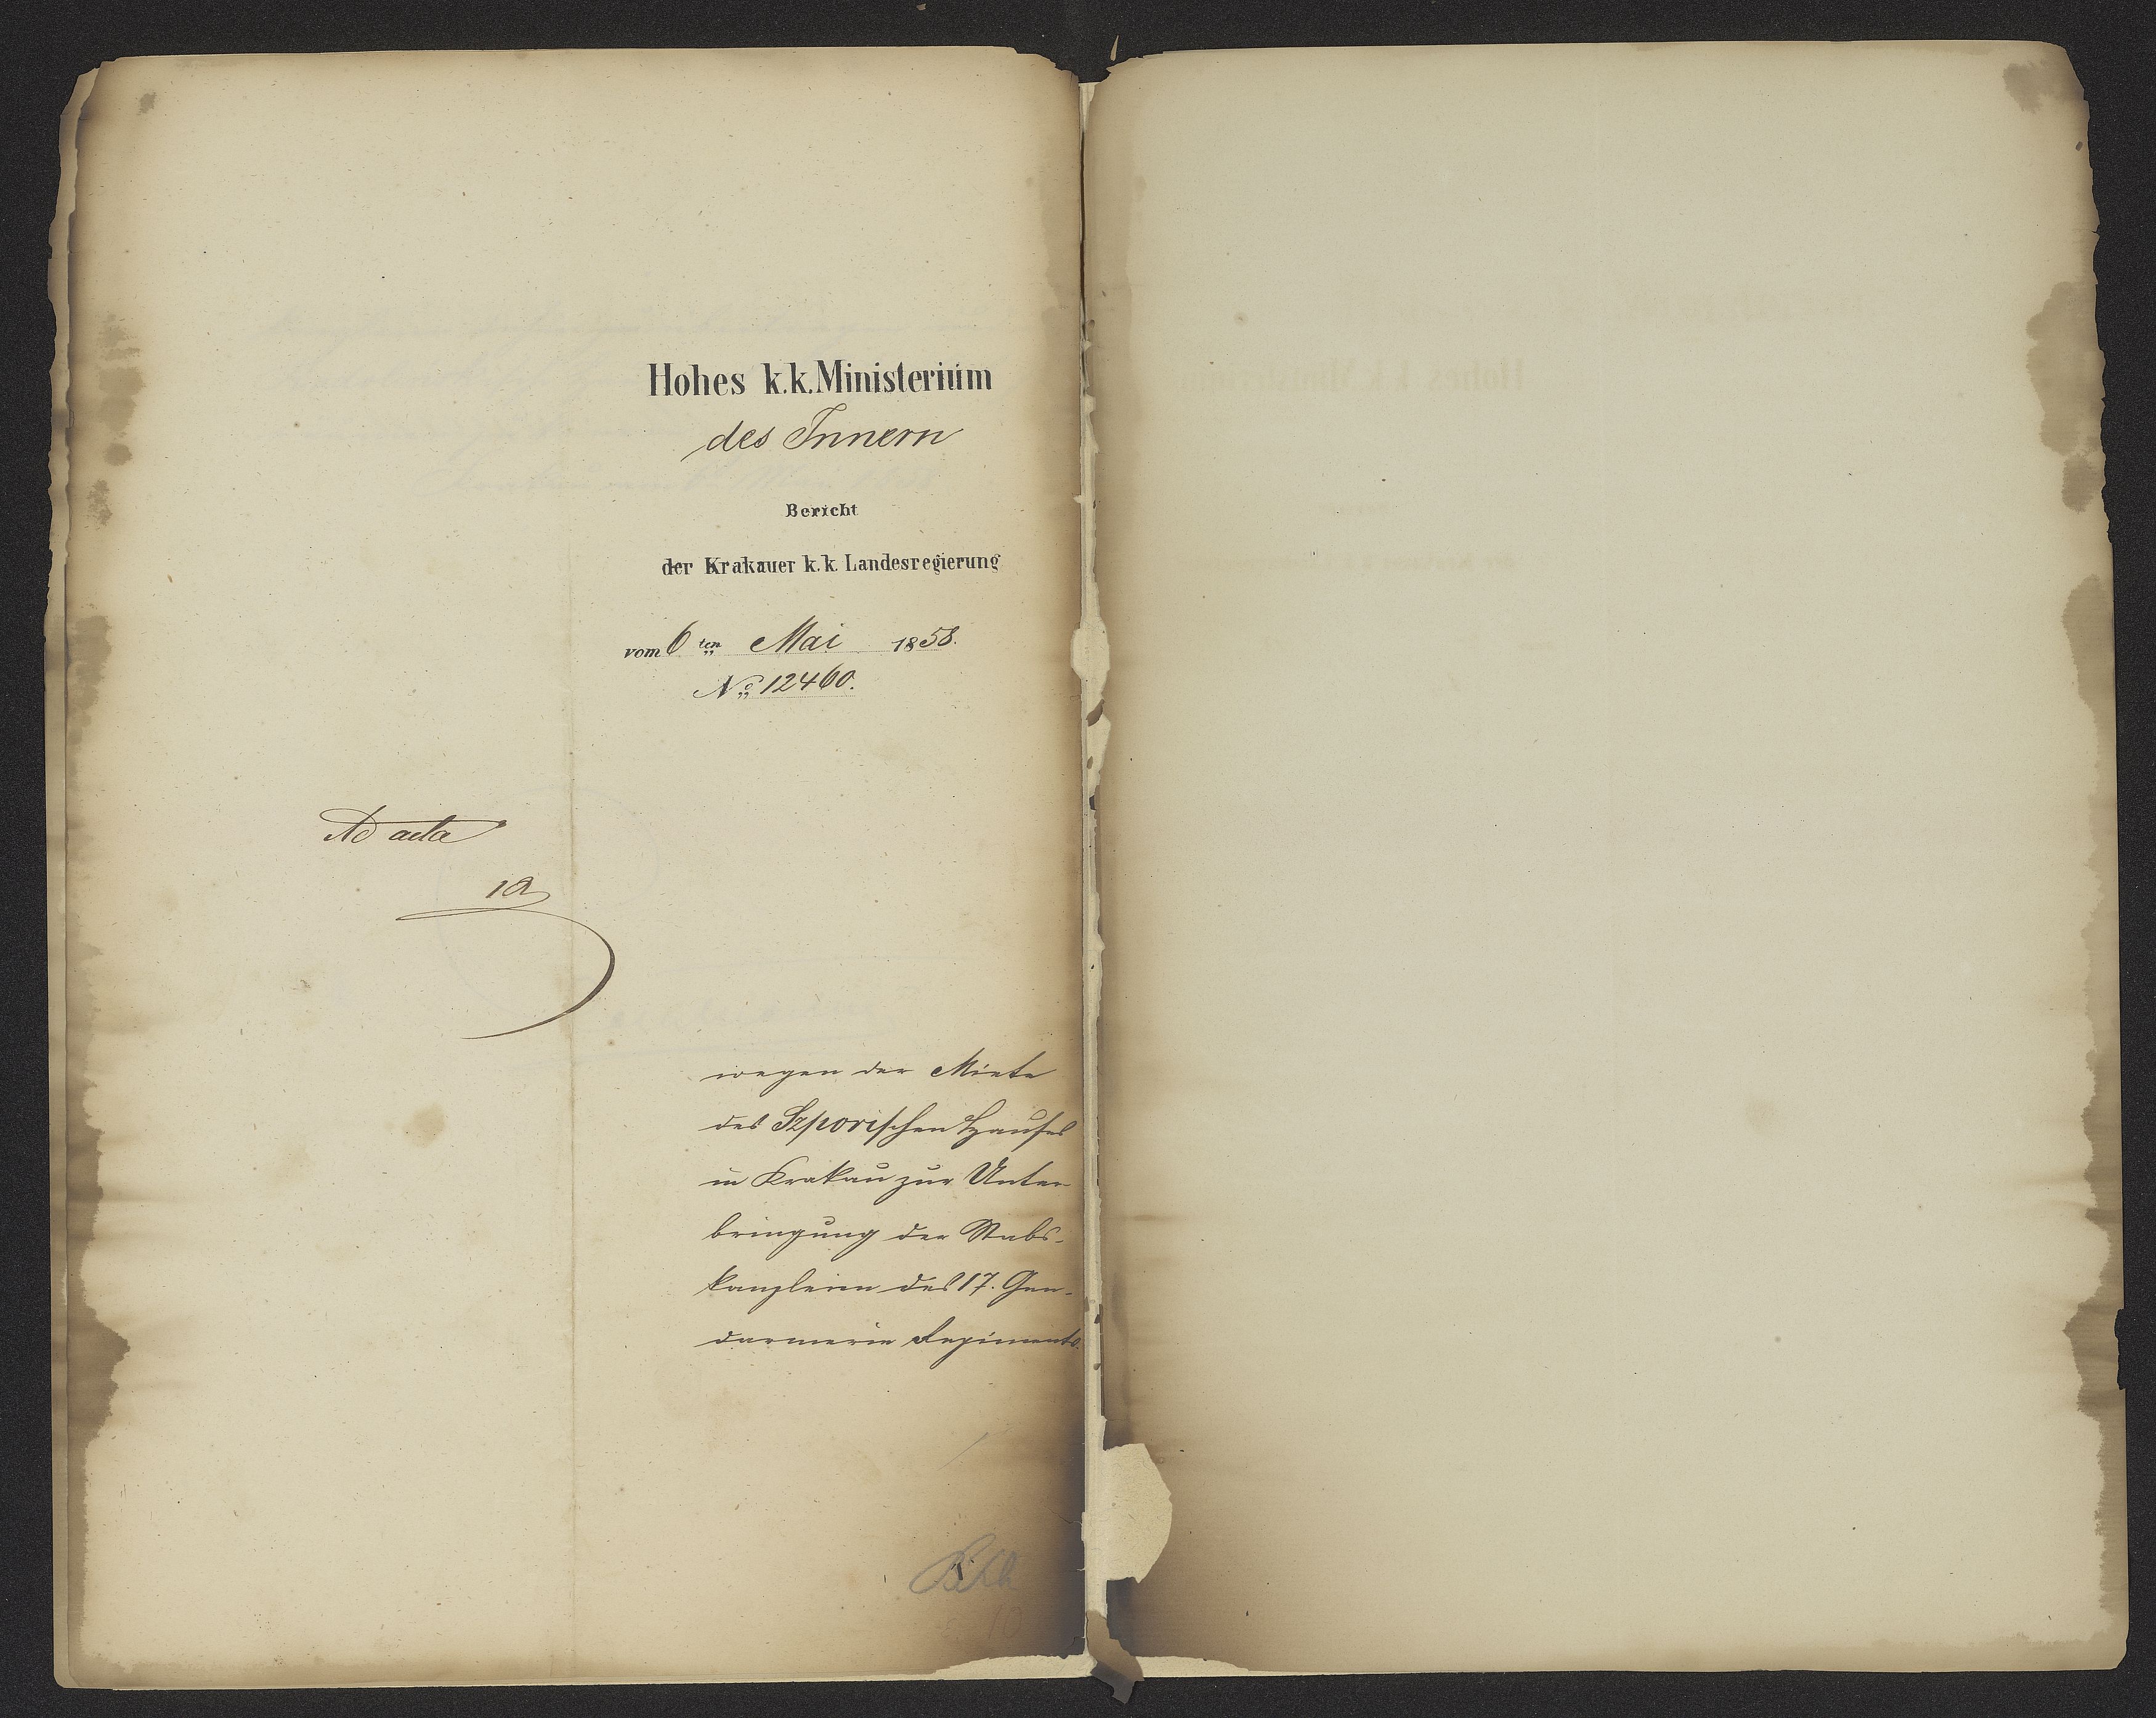 Hohes k.k. Ministerium
des Innern
Bericht
der Krakauer k.k. Landesregierung
vom 6ten Mai 1858.
No 12460.
Ad acta
wegen der Miete
des Szporischen Hauses
in Krakau zur Unter
bringung der Stabs-
kanzleien des 17. Gen-
darmerie Regiments.